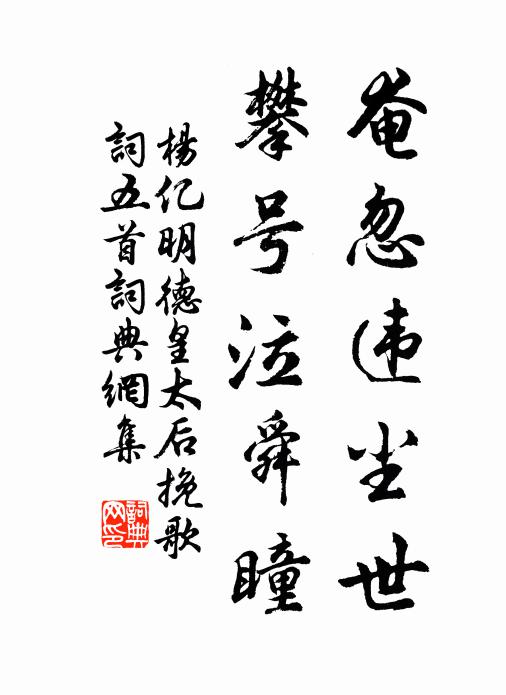 奄忽违尘世
攀号泣舜瞳
杨亿明德皇太后挽歌
詞五首詞典網集
詞典
网印